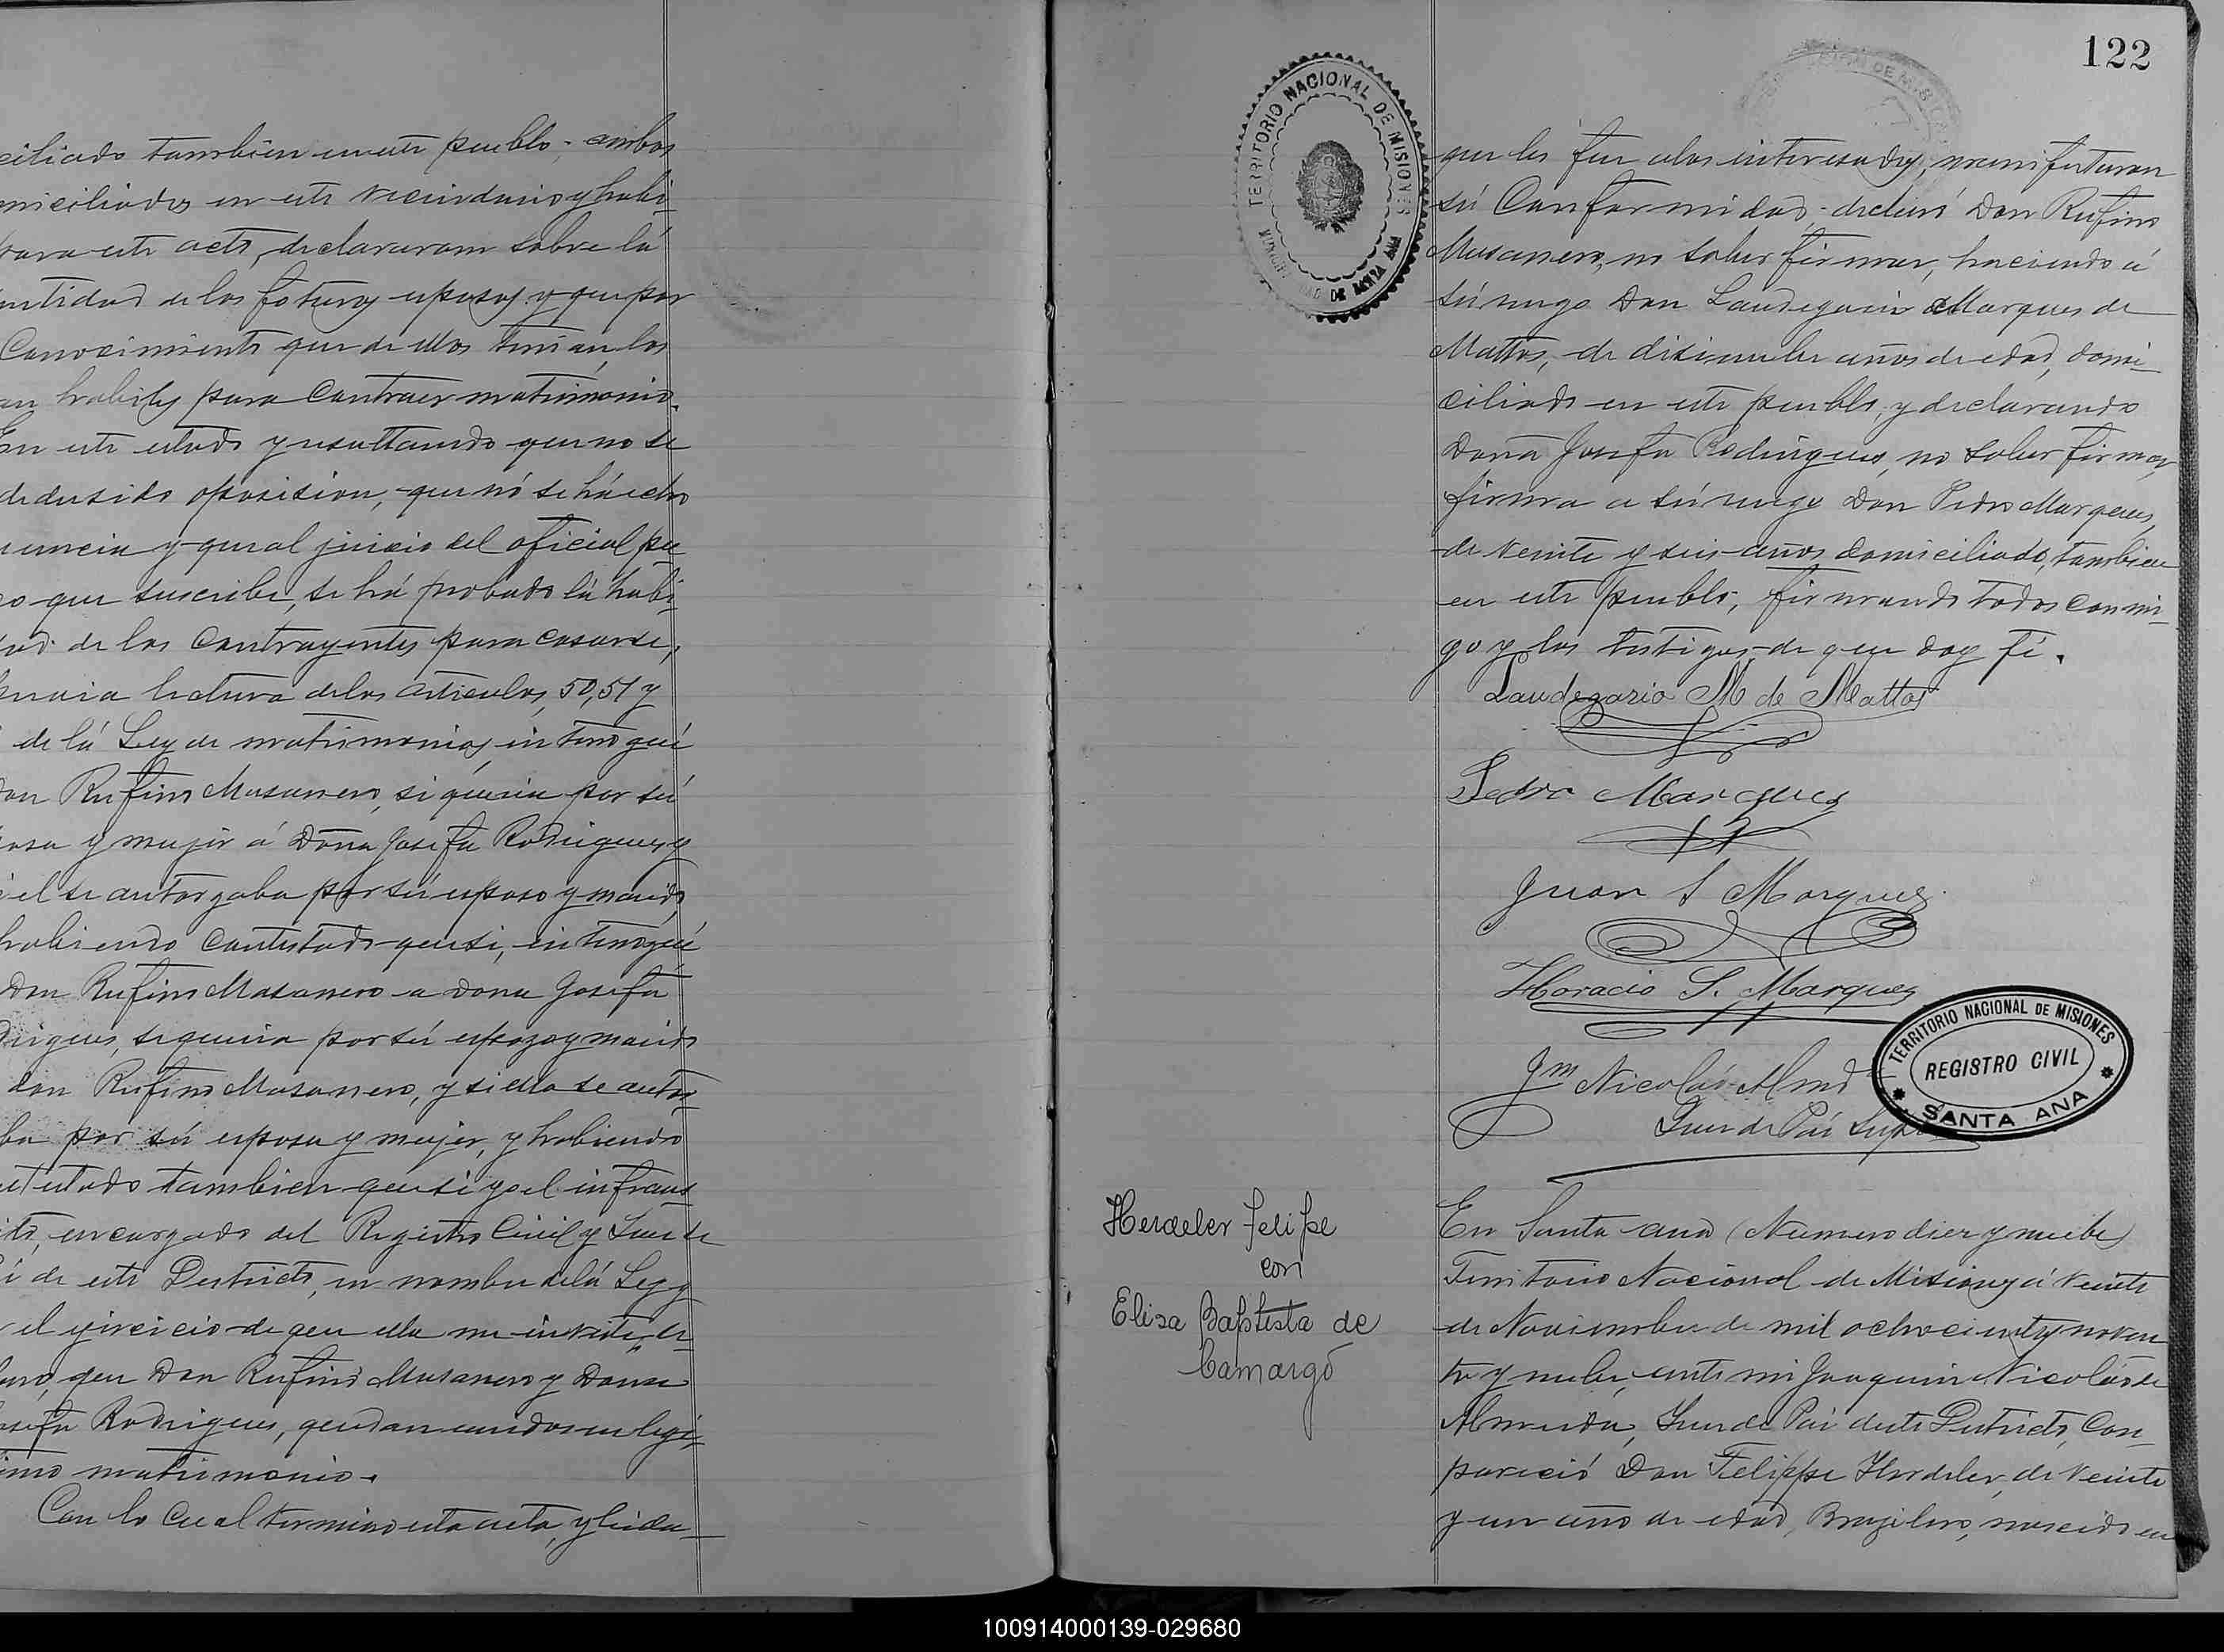 ciliado tambien en este pueblo; ambos
miciliados en este vecindario y habi-
para este acto, declararon sobre lá
ntidad de los foturos esposos y que por
Conocimiento que de ellos tenian, los
an habiles para Contraer matrimonio.
En este estado y resultando que no se
dedusido oposision, que nó se há echo
uncia y que al juicio del oficial pu
co que suscribe, se há probado lá habi-
ad de los Contrayentes para casarse,
previa lectura de los articulos, 50, 51 y
de lá Ley de matrimonios, interrogué
Don Rufino Musanero, si queria por sú
posa y mujer á Doña Josefa Rodrigues y
si el se autorgaba por sú esposo y marido,
habiendo Contestado que si, interrogué
Don Rufino Musanero a Dona Josefa
drigues, si queria por sú espozo y marido
don Rufino Musanero, y si ella se autor-
ba por sú esposa y mujer, y habiendo
testado tambien que si yo el infraes
ito, encargado del Registro Civil y Jues de
de este Destricto, en nombre de lá Ley y
el ejercicio de que ella me inviste, de-
ro, que Don Rufino Musanero y Dona
osefa Rodrigues, quedan unidos en legi-
imo matrimonio.
Con lo Cual termino esta acta, y leida
122
TERRITORIO NACIONAL DE MISIONES
MUNICIPALIDAD DE SANTA ANA
que les fue a los interesados, manifestaron
sú Conformidad; declaró Don Rufino
Musanero, no saber firmar, haciendo á
sú ruego Don Laudegario Marques de
Mattos, de disinuebe años de edad, domi-
ciliado en este pueblo, y declarando
Dona Josefa Rodrigues, no saber firmar,
firma a sú ruego Don Pedro Marques,
de veinte y seis años domiciliado, tambien
en este pueblo, firmando todos con mi-
go y los testigos de que doy fé.
Laudegario M de Mattos
Pedro Marques
Juan S Marques
Horacio S. Marques
Jm Nicolás Almda
Jues de Pás
TERRITORIO NACIONAL DE MISIONES
REGISTRO CIVIL
SANTA ANA
Herdeler Felipe
con
Elisa Baptista de
Camargo
En Santa Ana (Numero dies y nuebe)
Territorio Nacional de Misiones á veinte
de Noviembre de mil ochocientos noven
ta y nuebe, ante mi Joaquin Nicolás de
Almeida, Jues de Pás deste Destricto, Con-
pareció Don Felippe Herdeler, de veinte
y un año de edad, Brazilero, nascido en
100914000139-029680